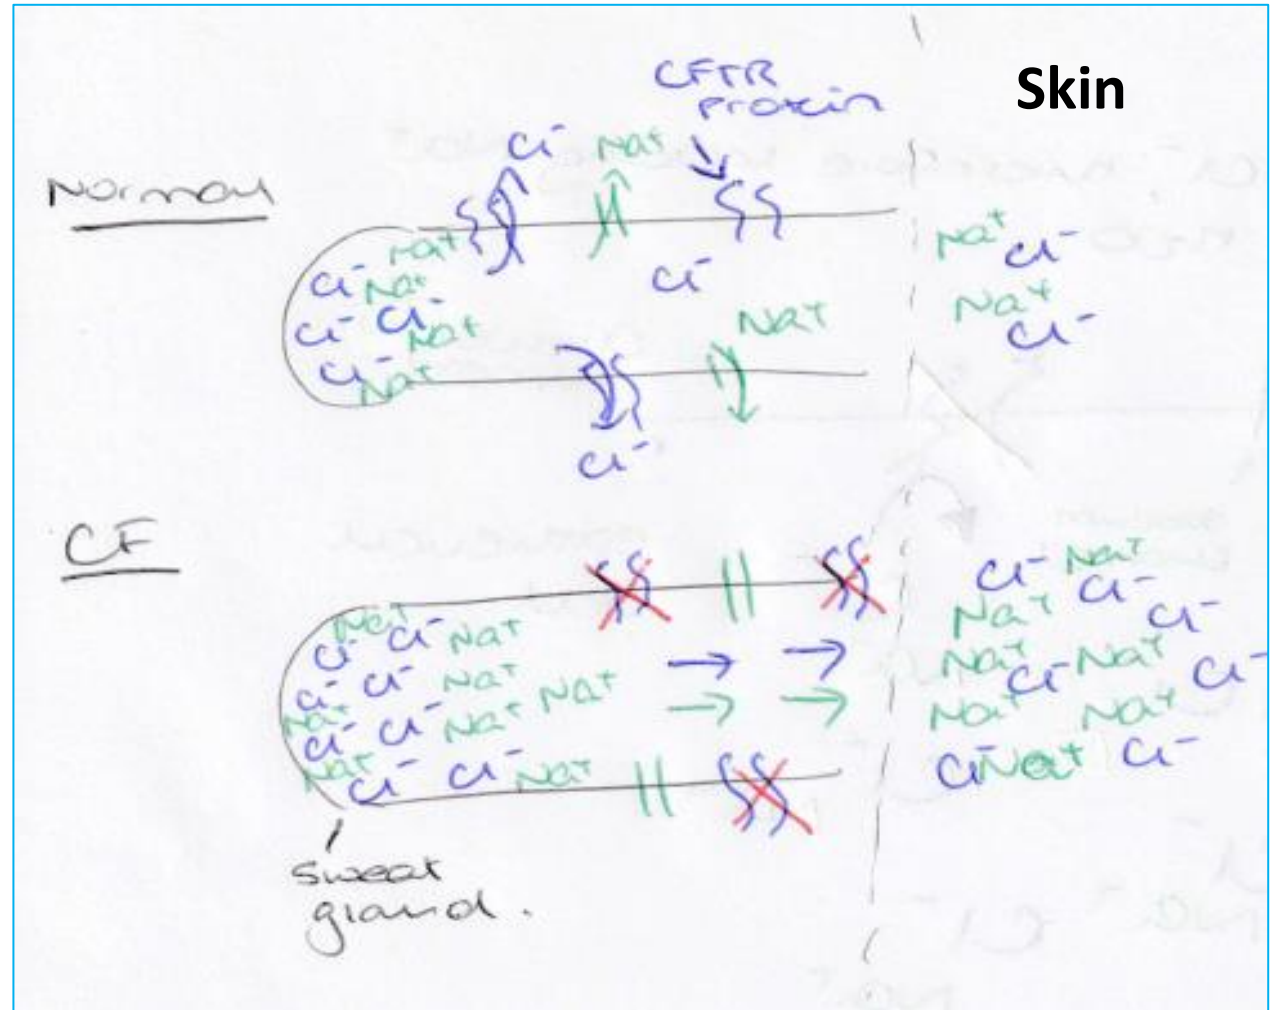 Skin
CFTR
protein
Cl⁻ Na⁺
Normal
Na⁺
Cl⁻ Na⁺
Cl⁻ Cl⁻
Na⁺
Cl⁻
Na⁺
Cl⁻
Na⁺
Cl⁻
Na⁺
Cl⁻
Na⁺
Cl⁻
CF
Na⁺
Cl⁻ Na⁺
Cl⁻
Cl⁻ Cl⁻ Na⁺
Na⁺
Na⁺
Cl⁻ Cl⁻ Na⁺
Na⁺
Cl⁻ Cl⁻ Na⁺
Cl⁻ Na⁺
Cl⁻
Na⁺
Cl⁻
Na⁺ Na⁺
Cl⁻ Cl⁻
Na⁺ Na⁺
Cl⁻ Na⁺ Cl⁻
sweat
gland.